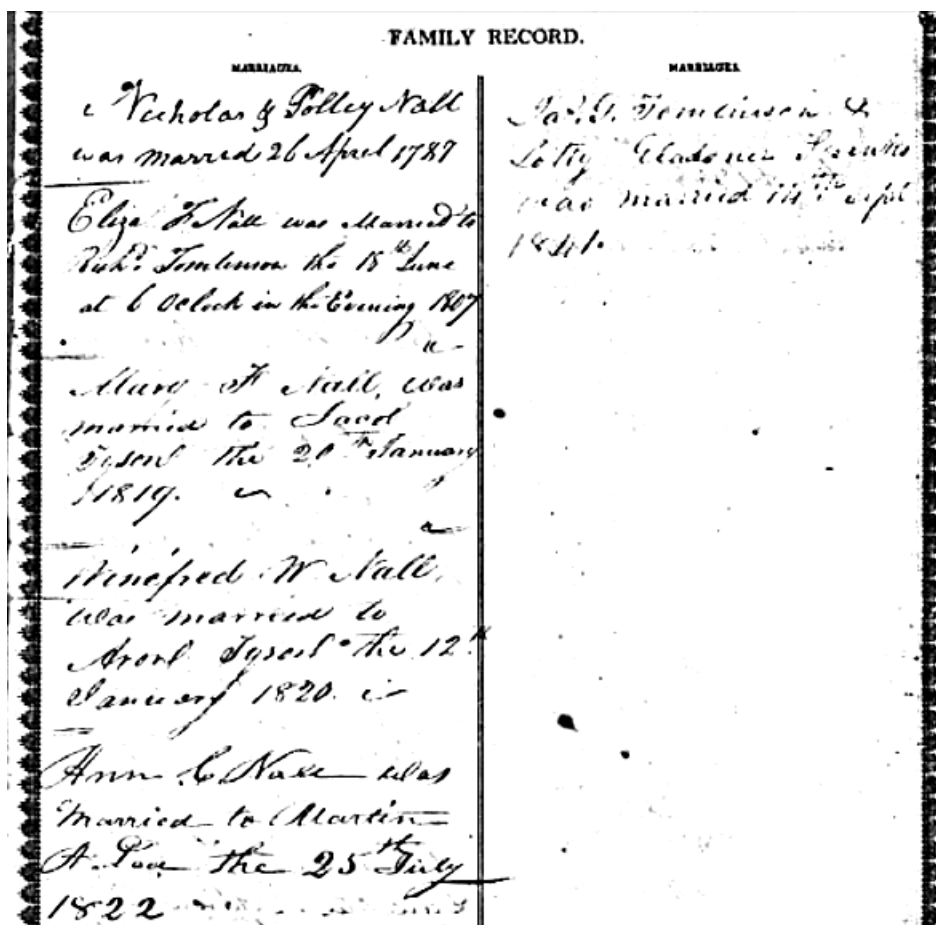 FAMILY RECORD.
MARRIAGES.
Nicholas & Polley Nall
was married 26 April 1787
Eliza F Nall was Married to
Richd. Tomlinson the 18th June
at 6 Oclock in the Evening 1807
Mary F Nall, was
married to Jacob
Tyson the 20th January
1819.
Winefred W Nall,
was married to
Aron Tyson the 12th
January 1820.
Ann C Nall was
Married to Martin
A. Poe the 25th July
1822
MARRIAGES.
Jas. T. Tomlinson &
Lotty
was married 14th Sept
1841.